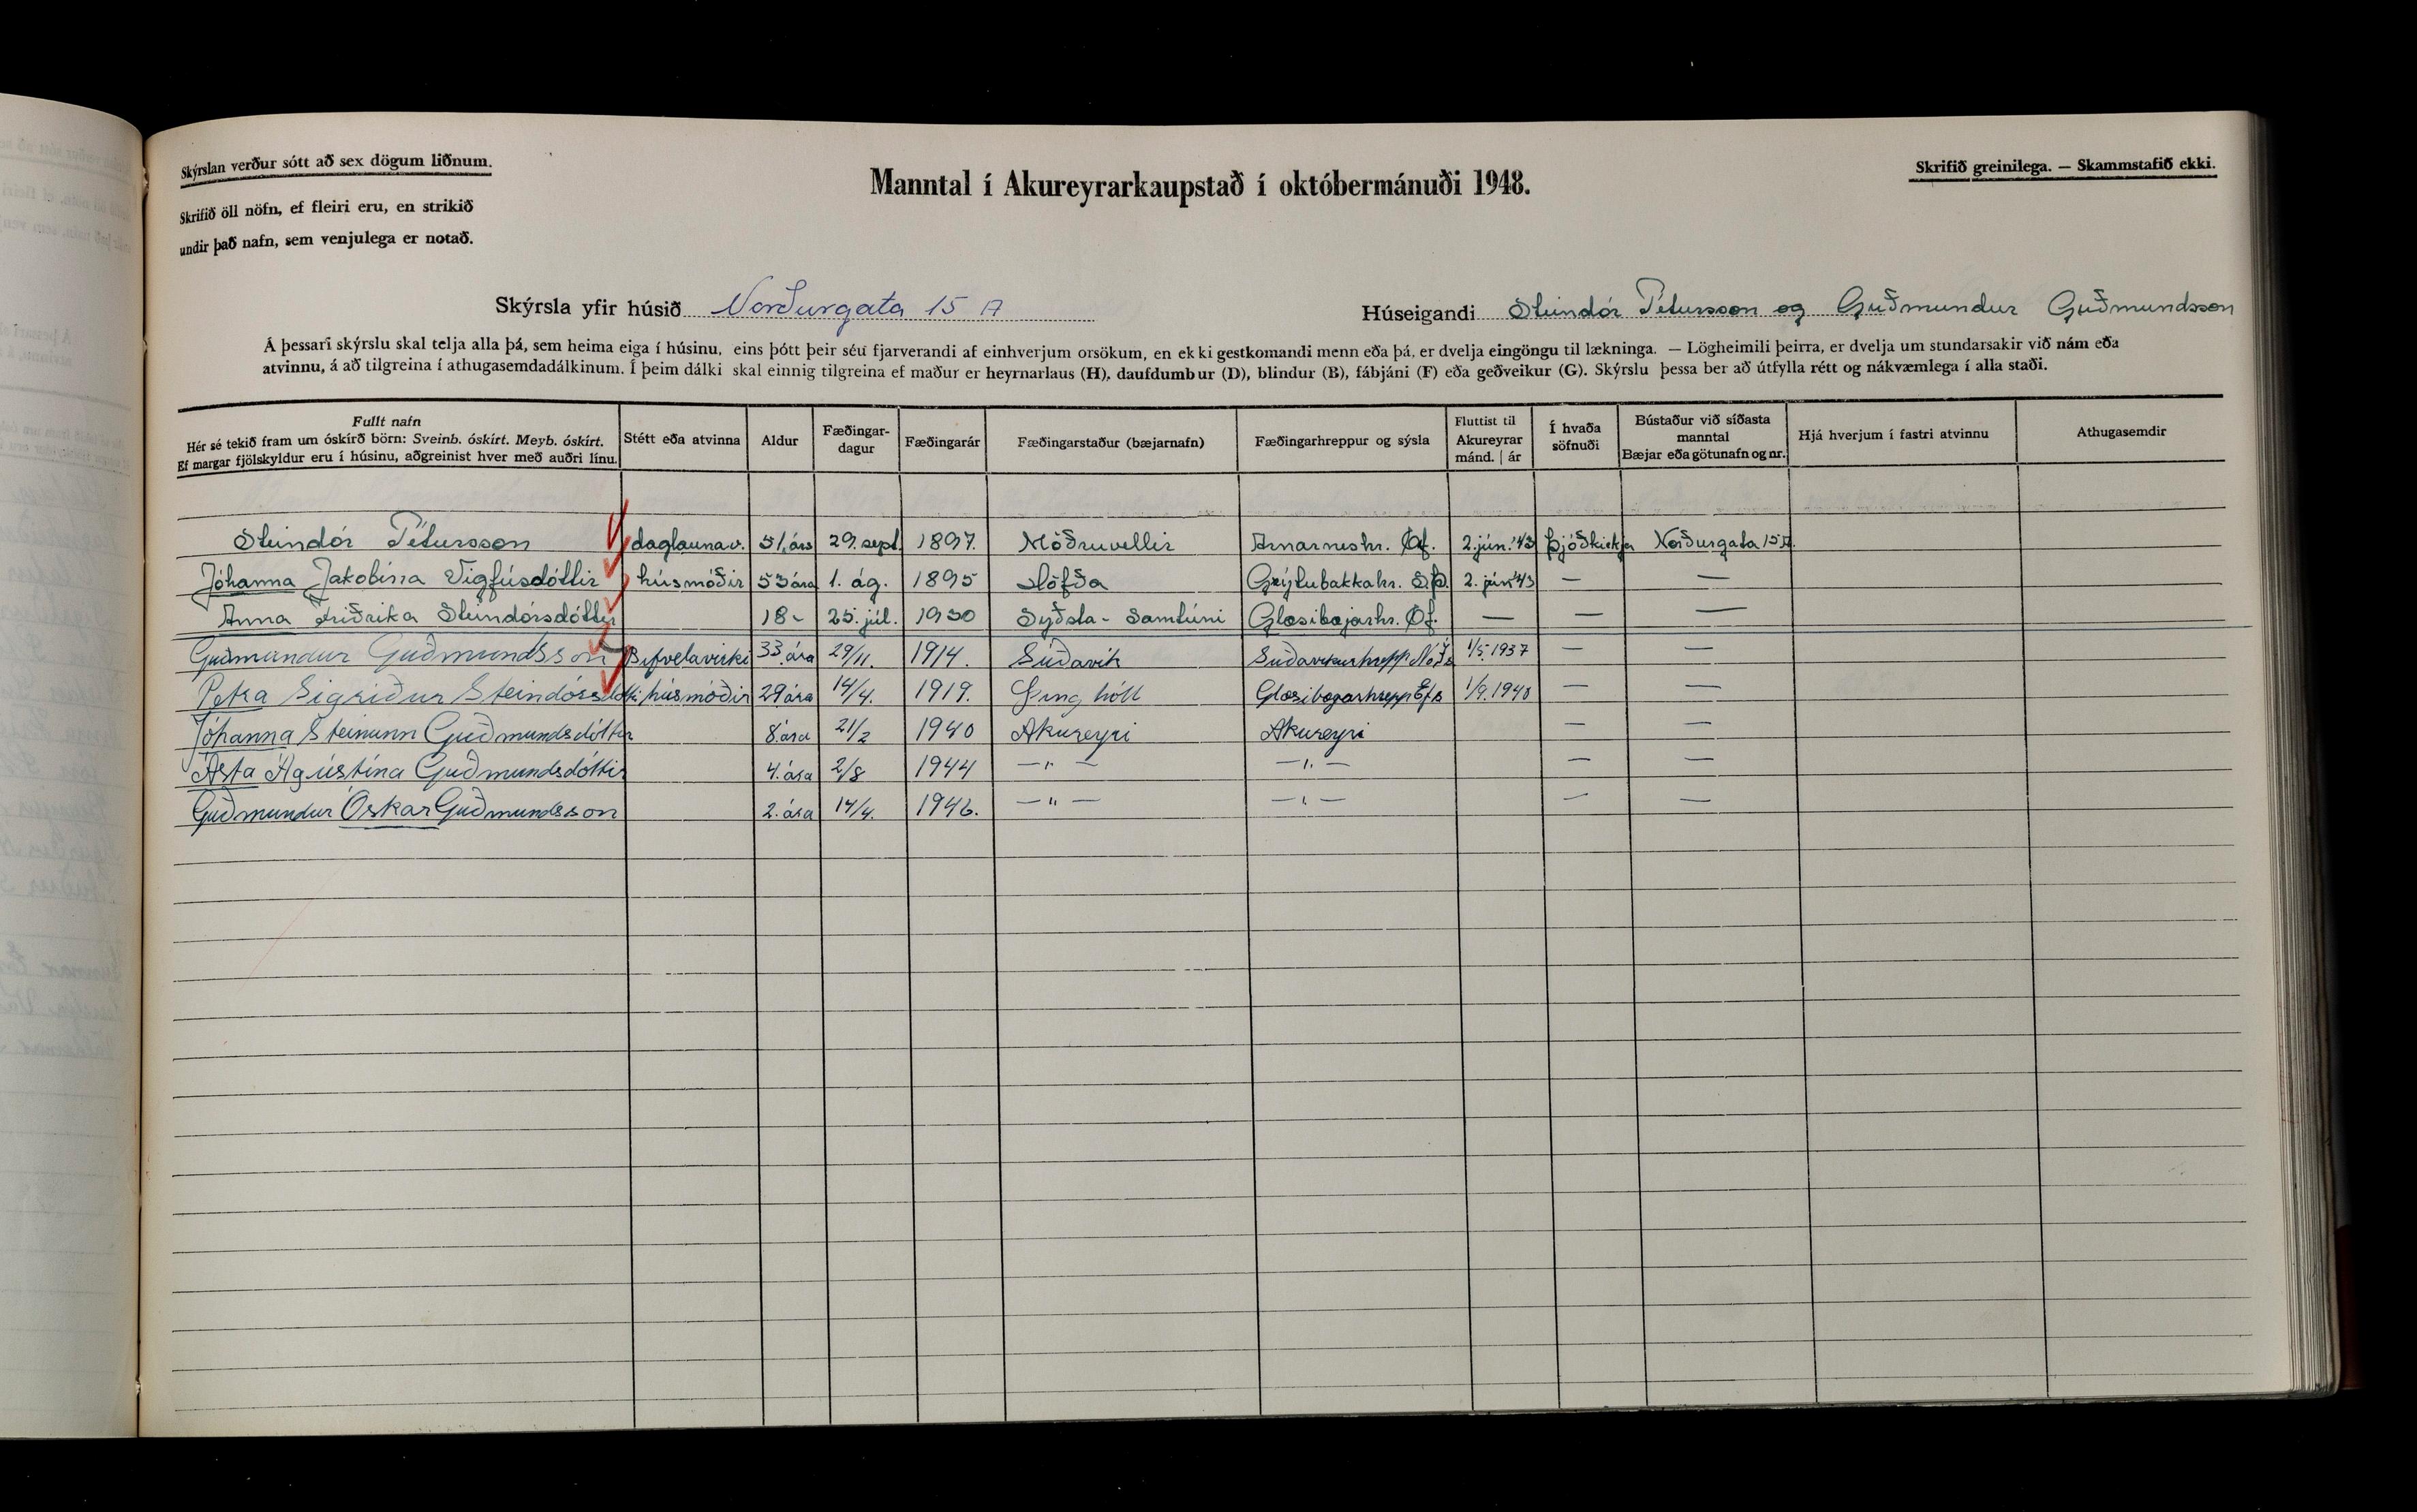 Skýrslan verður sótt að sex dögum liðnum.
Skrifið öll nöfn, ef fleiri eru, en strikið
undir það nafn, sem venjulega er notað.
Manntal í Akureyrarkaupstað í októbermánuði 1948.
Skrifið greinilega. — Skammstafið ekki.
Skýrsla yfir húsið Norðurgata 15 A
Húseigandi Steindór Pétursson og Guðmundur Guðmundsson
Á þessari skýrslu skal telja alla þá, sem heima eiga í húsinu, eins þótt þeir séu fjarverandi af einhverjum orsökum, en ekki gestkomandi menn eða þá, er dvelja eingöngu til lækninga. — Lögheimili þeirra, er dvelja um stundarsakir við nám eða
atvinnu, á að tilgreina í athugasemdadálkinum. Í þeim dálki skal einnig tilgreina ef maður er heyrnarlaus (H), daufdumbur (D), blindur (B), fábjáni (F) eða geðveikur (G). Skýrslu þessa ber að útfylla rétt og nákvæmlega í alla staði.
Fullt nafn
Hér sé tekið fram um óskírð börn: Sveinb. óskírt. Meyb. óskírt.
Ef margar fjölskyldur eru í húsinu, aðgreinist hver með auðri línu.
Stétt eða atvinna
Aldur
Fæðingar-
dagur
Fæðingarár
Fæðingarstaður (bæjarnafn)
Fæðingarhreppur og sýsla
Fluttist til
Akureyrar
mánd. | ár
Í hvaða
söfnuði
Bústaður við síðasta
manntal
Bæjar eða götunafn og nr.
Hjá hverjum í fastri atvinnu
Athugasemdir
Steindór Pétursson daglaunav. 51. árs 29. sept. 1897. Möðruvellir Arnarneshr. Ef. 2. jún. '43 þjóðkirkja Norðurgata 15 A.
Jóhanna Jakobína Vigfúsdóttir húsmóðir 53 ára 1. ág. 1895 Höfða Grýtubakkahr. S.Þ. 2. jún '43 — —
Anna Friðrika Steindórsdóttir 18 - 25. júl. 1930 Syðsta-Samtúni Glæsibæjarhr. Ef. — — —
Guðmundur Guðmundsson Bifvélavirki 33 ára 29/11. 1914. Súðavík Súðavíkurhrepp 1/5. 1937 — —
Petra Sigríður Steindórsdótti húsmóðir 29 ára 14/4. 1919. Glæsibæjarhrepp Efs 1/9. 1948 — —
Jóhanna Steinunn Guðmundsdóttir 8. ára 21/2 1940 Akureyri Akureyri — —
Ásta Ágústína Guðmundsdóttir 4. ára 2/8 1944 —"— —"— — —
Guðmundur Óskar Guðmundsson 2. ára 14/4. 1946. —"— —"— — —